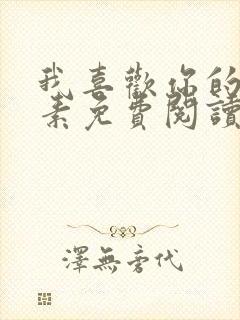 我喜歡你的
素免費閱讀
澤無旁代